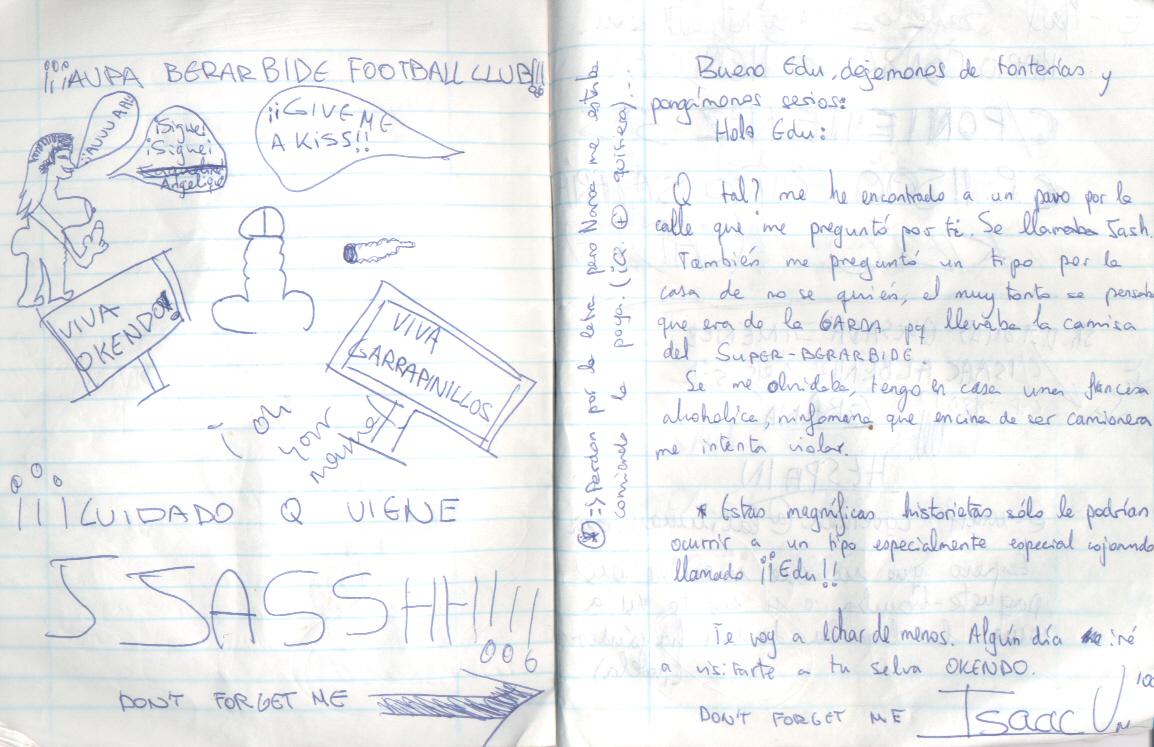 ¡¡¡AUPA BERARBIDE FOOTBALL CLUB!!!
¡AUUU AAU
¡Sigue!
¡Sigue!
Angelique
¡¡GIVE ME
A KISS!!
VIVA
OKENDO!
VIVA
GARRAPINILLOS
¡oh
your
mama!
¡¡¡CUIDADO Q VIENE
SSASSHH!!!!
DON'T FORGET ME
⊛ => Perdon por la letra pero Nared me estaba
comiendo la polla. (ice. ⊕ quisiera)...
Bueno Edu, dejemonos de tonterías y
pongámonos serios:
Hola Edu:
Q tal? me he encontrado a un pavo por la
calle que me preguntó por ti. Se llamaba Sash.
También me preguntó un tipo por la
casa de no se quién, el muy tonto se pensaba
que era de la GARDA pq llevaba la camisa
del SUPER-BERARBIDE.
Se me olvidaba, tengo en casa una francesa
alcoholica, ninfomana que encima de ser camionera
me intenta violar.
* Estas magníficas historietas sólo le podrían
ocurrir a un tipo especialmente especial cojonudo
llamado ¡¡Edu!!
Te voy a echar de menos. Algún día iré
a visitarte a tu selva OKENDO.
DON'T FORGET ME Isaac